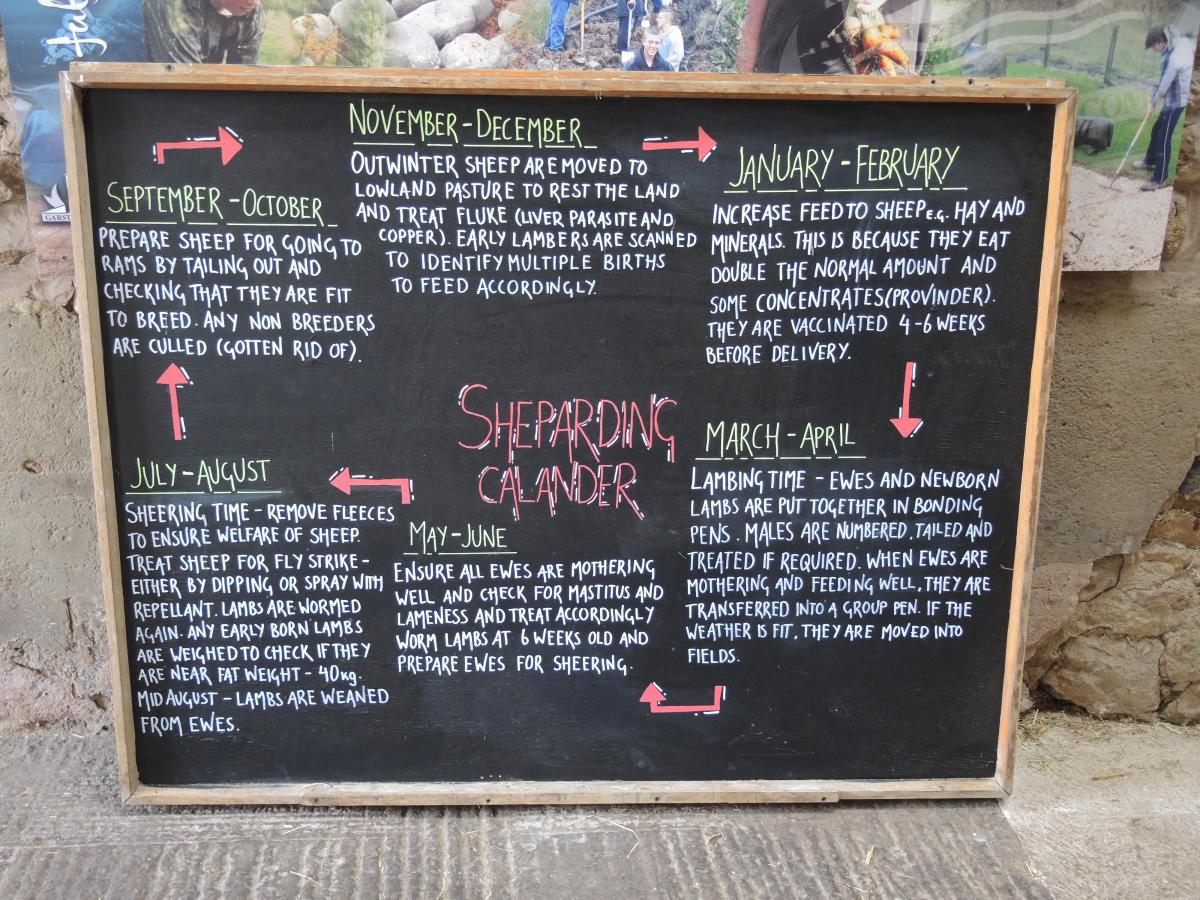 SHEPARDING
CALANDER
SEPTEMBER - OCTOBER
PREPARE SHEEP FOR GOING TO
RAMS BY TAILING OUT AND
CHECKING THAT THEY ARE FIT
TO BREED. ANY NON BREEDERS
ARE CULLED (GOTTEN RID OF).
NOVEMBER - DECEMBER
OUTWINTER SHEEP ARE MOVED TO
LOWLAND PASTURE TO REST THE LAND
AND TREAT FLUKE (LIVER PARASITE AND
COPPER). EARLY LAMBERS ARE SCANNED
TO IDENTIFY MULTIPLE BIRTHS
TO FEED ACCORDINGLY.
JANUARY - FEBRUARY
INCREASE FEED TO SHEEP e.g. HAY AND
MINERALS. THIS IS BECAUSE THEY EAT
DOUBLE THE NORMAL AMOUNT AND
SOME CONCENTRATES (PROVINDER).
THEY ARE VACCINATED 4-6 WEEKS
BEFORE DELIVERY.
MARCH - APRIL
LAMBING TIME - EWES AND NEWBORN
LAMBS ARE PUT TOGETHER IN BONDING
PENS. MALES ARE NUMBERED, TAILED AND
TREATED IF REQUIRED. WHEN EWES ARE
MOTHERING AND FEEDING WELL, THEY ARE
TRANSFERRED INTO A GROUP PEN. IF THE
WEATHER IS FIT, THEY ARE MOVED INTO
FIELDS.
MAY - JUNE
ENSURE ALL EWES ARE MOTHERING
WELL AND CHECK FOR MASTITUS AND
LAMENESS AND TREAT ACCORDINGLY
WORM LAMBS AT 6 WEEKS OLD AND
PREPARE EWES FOR SHEERING.
JULY - AUGUST
SHEERING TIME - REMOVE FLEECES
TO ENSURE WELFARE OF SHEEP.
TREAT SHEEP FOR FLY STRIKE -
EITHER BY DIPPING OR SPRAY WITH
REPELLANT. LAMBS ARE WORMED
AGAIN. ANY EARLY BORN LAMBS
ARE WEIGHED TO CHECK IF THEY
ARE NEAR FAT WEIGHT - 40kg.
MID AUGUST - LAMBS ARE WEANED
FROM EWES.